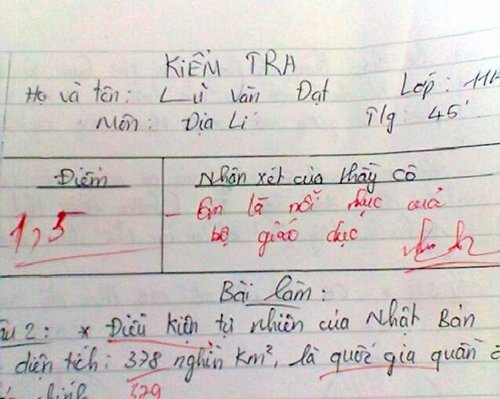 KIỂM TRA
Họ và tên: Lừ Văn Đạt Lớp: 11A
Môn: Địa Lí T/g 45'
Điểm
Nhận xét của thầy cô
1,5
- Em là nỗi nhục của
bộ giáo dục
Bài làm:
2: * Điều kiện tự nhiên của Nhật Bản
diện tích: 378 nghìn km², là quốc gia quần
379